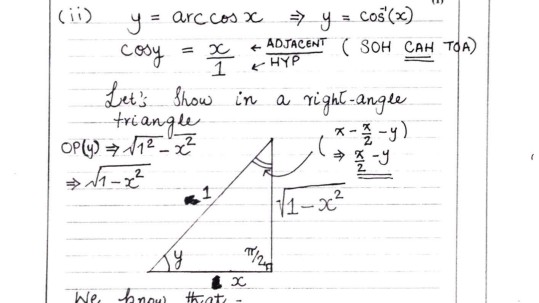 (ii) y = arc cos x ⇒ y = cos⁻¹(x)
cosy = x/1 ← ADJACENT ← HYP ( SOH CAH TOA)
Let's show in a right-angle
triangle
OP(y) ⇒ √1² - x²
⇒ √1-x²
(π - π/2 - y)
⇒ π/2 - y
1
√1-x²
y
π/2
x
We know that -